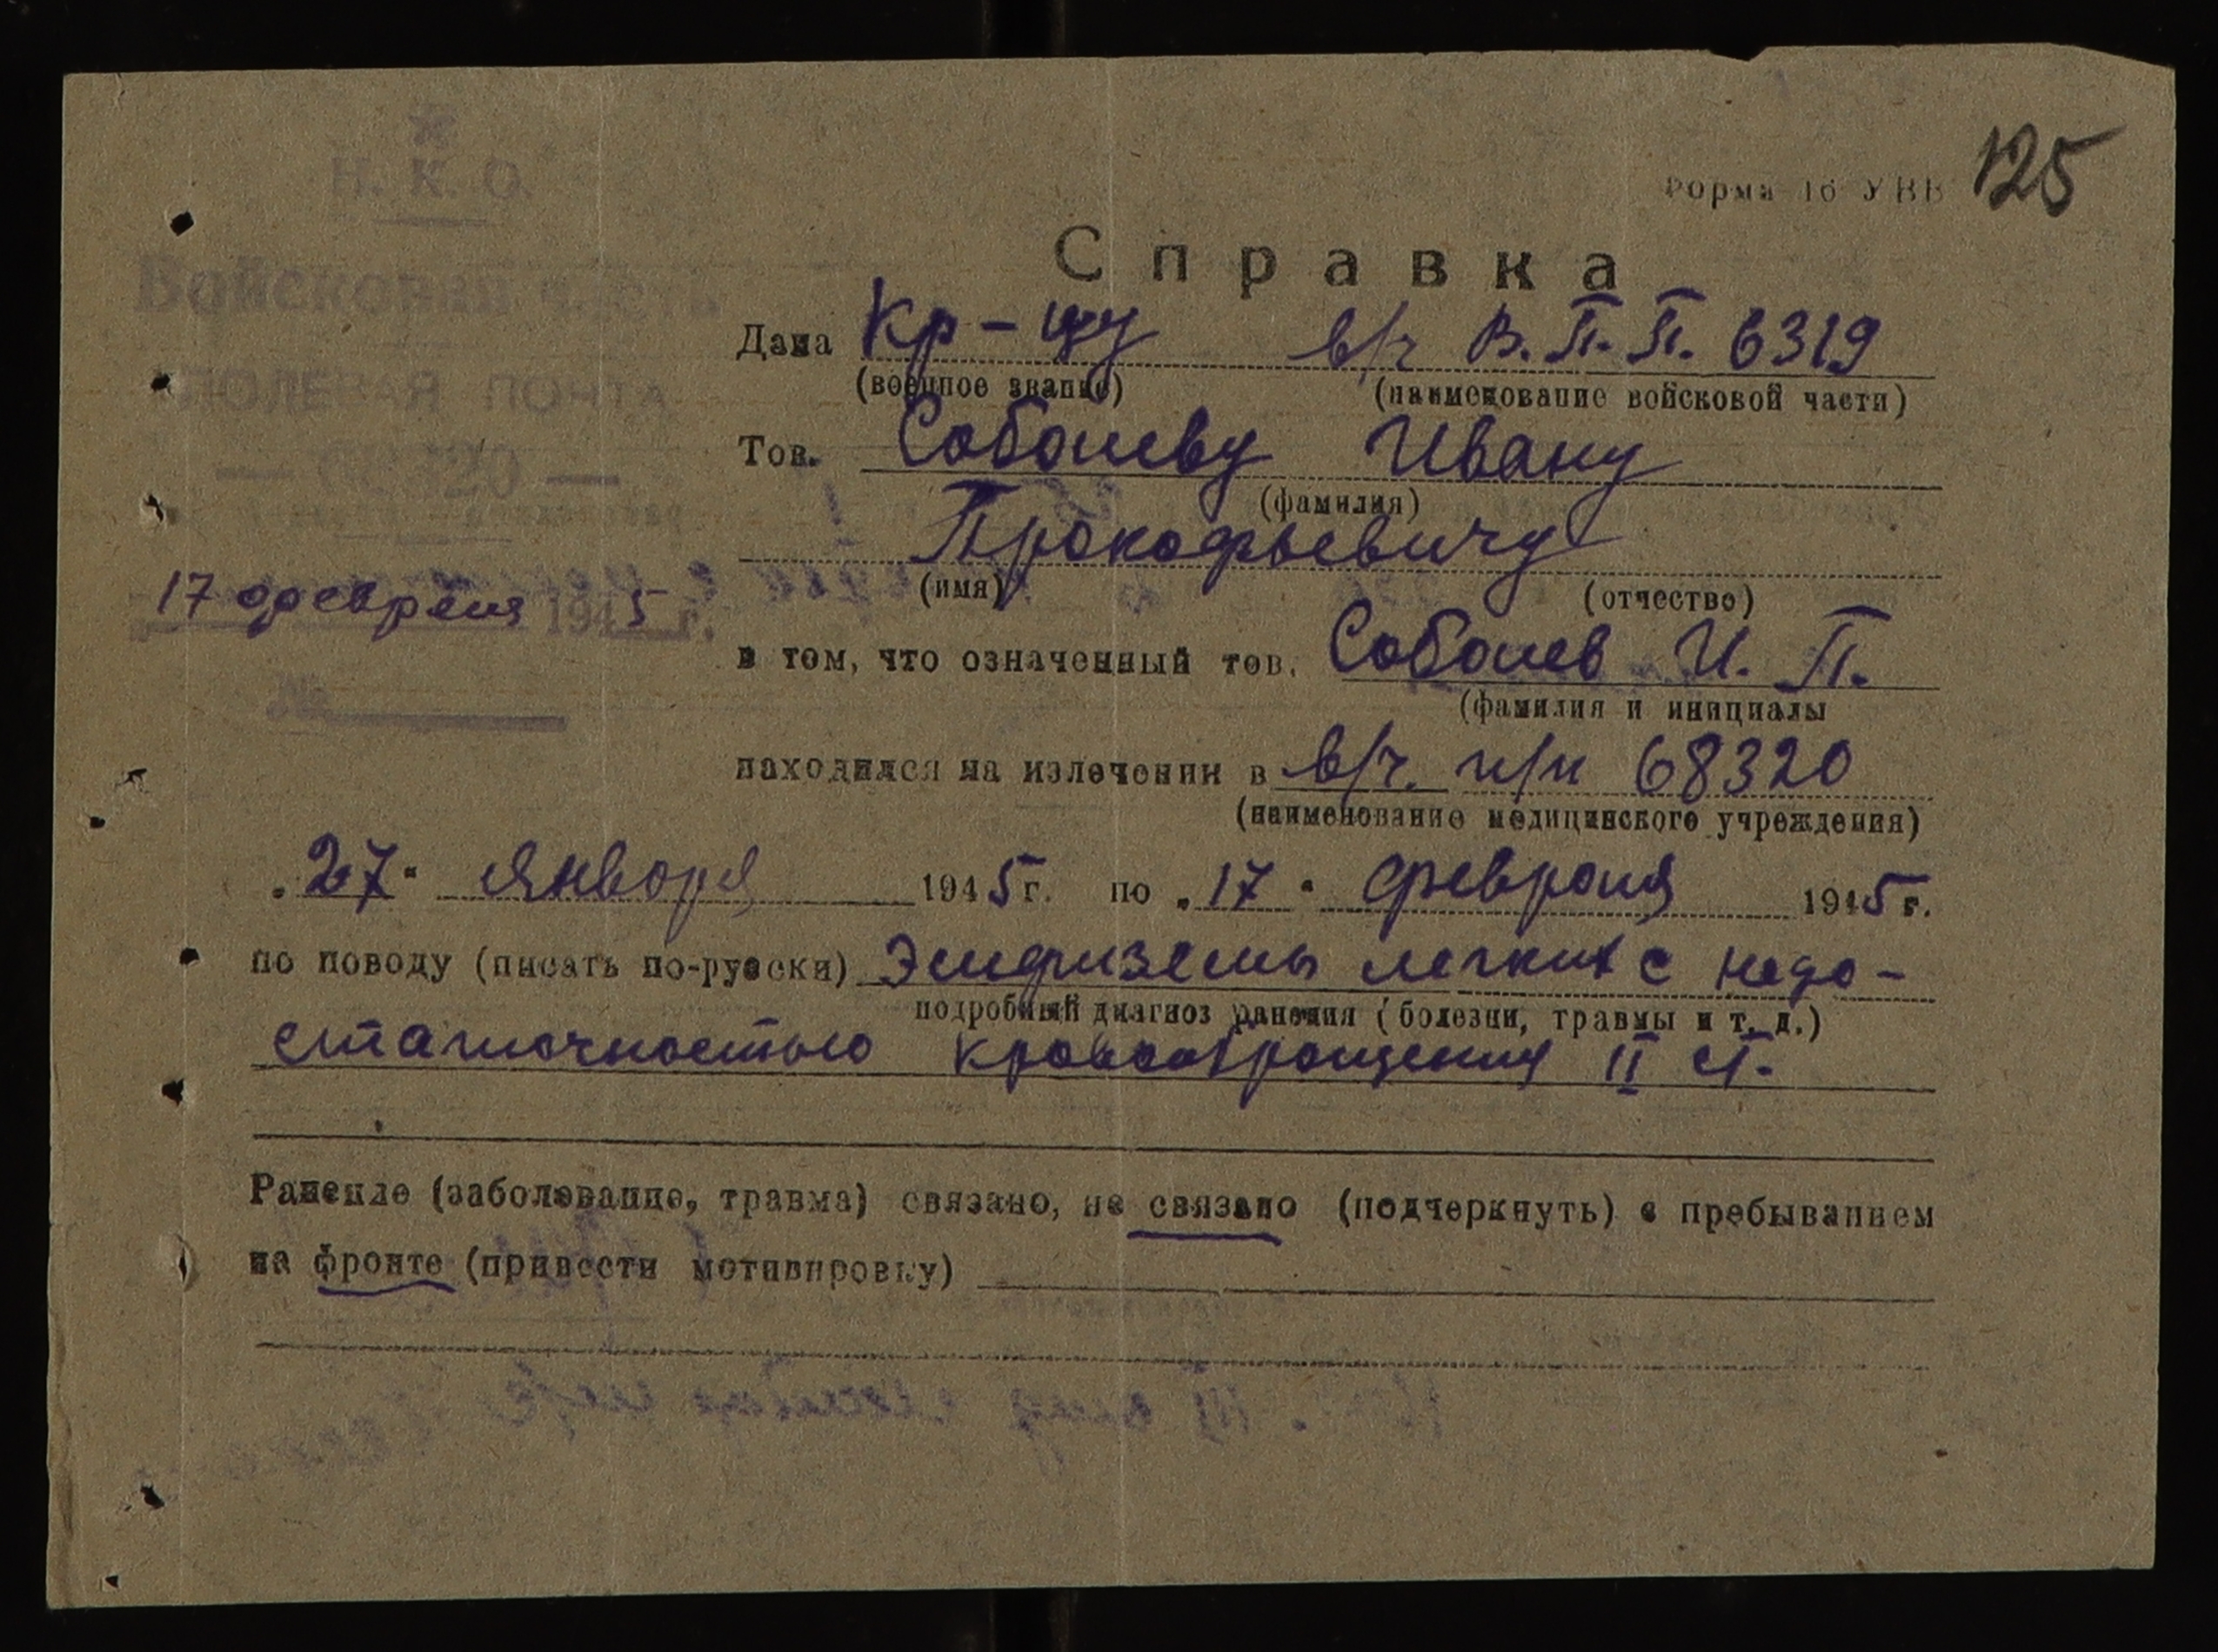 125
Форма 16 УВВ
Н. К. О.
Войсковая часть
ПОЛЕВАЯ ПОЧТА
— 68320 —
17 февраля 1945 г.
№
Справка
Дана Кр-цу в/ч В.П.П. 6319
(военное звание) (наименование войсковой части)
Тов. Соболеву Ивану
(фамилия)
Прокофьевичу
(имя) (отчество)
в том, что означенный тов. Соболев И. П.
(фамилия и инициалы
находился на излечении в в/ч. п/п 68320
(наименование медицинского учреждения)
„27“ января 1945 г. по „17“ февраля 1945 г.
по поводу (писать по-русски) Эмфиземы легких с недо-
подробный диагноз ранения (болезни, травмы и т. д.)
статочностью кровообращения II ст.
Ранение (заболевание, травма) связано, не связано (подчеркнуть) с пребыванием
на фронте (привести мотивировку)